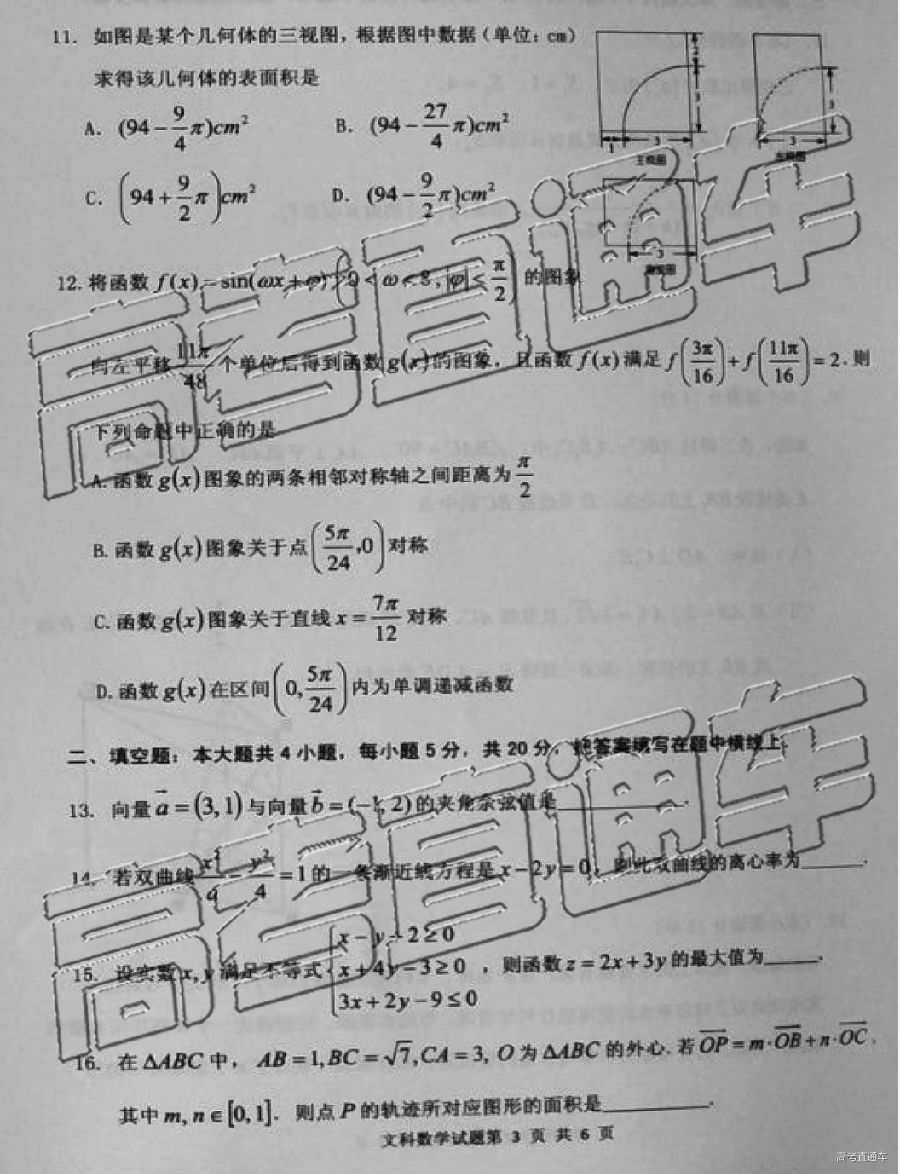 11. 如图是某个几何体的三视图，根据图中数据（单位：cm）
求得该几何体的表面积是
A. (94 - 9/4 π)cm² B. (94 - 27/4 π)cm²
C. (94 + 9/2 π)cm² D. (94 - 9/2 π)cm²
2
3
1 3
主视图
3
3
左视图
3
12. 将函数 f(x) = sin(ωx+φ)(0<ω<8, |φ|≤ π/2) 的图象
向左平移 11π/48 个单位后得到函数 g(x) 的图象，且函数 f(x) 满足 f(3π/16) + f(11π/16) = 2. 则
下列命题中正确的是
A. 函数 g(x) 图象的两条相邻对称轴之间距离为 π/2
B. 函数 g(x) 图象关于点 (5π/24, 0) 对称
C. 函数 g(x) 图象关于直线 x = 7π/12 对称
D. 函数 g(x) 在区间 (0, 5π/24) 内为单调递减函数
二、填空题：本大题共 4 小题，每小题 5 分，共 20 分，把答案填写在题中横线上.
13. 向量 a = (3, 1) 与向量 b = (-1, 2) 的夹角余弦值是________.
14. 若双曲线 - y²/4 = 1 的一条渐近线方程是 x - 2y = 0，则此双曲线的离心率为______.
15. 设实数 x, y 满足不等式 { x - y + 2 ≥ 0
x + 4y - 3 ≥ 0 ，则函数 z = 2x + 3y 的最大值为_____.
3x + 2y - 9 ≤ 0
16. 在 ΔABC 中， AB = 1, BC = √7, CA = 3, O 为 ΔABC 的外心. 若 OP = m·OB + n·OC ,
其中 m, n ∈ [0, 1]. 则点 P 的轨迹所对应图形的面积是________.
文科数学试题第 3 页 共 6 页
高考直通车
高考直通车
高考直通车